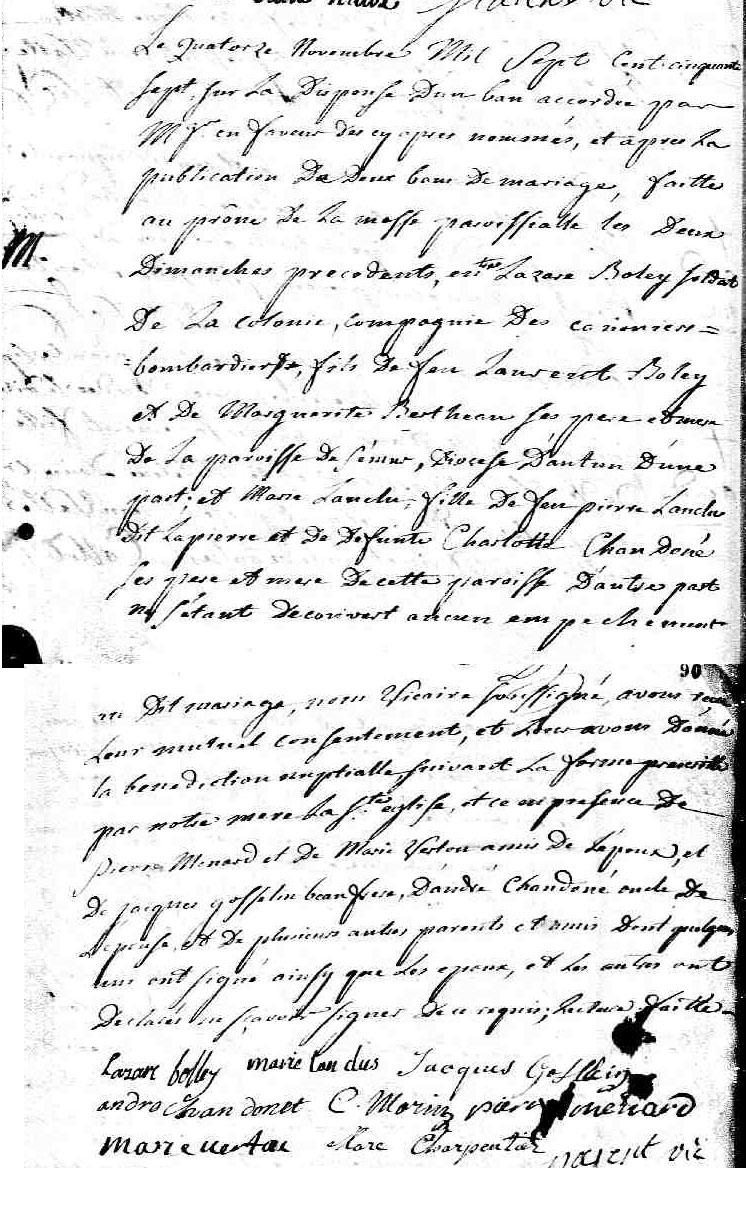 Le quatorze Novembre Mil Sept Cent cinquante
sept, sur La Dispense D'un ban accordée par
Mgr en faveur des cy apres nommés, et apres La
publication De Deux bans De mariage, faitte
au prône De La messe paroissialle les Deux
M.
Dimanches precedents, entre Lazare Boley soldat
De La colonie, compagnie Des canoniers =
=bombardiers, fils De feu Laurent Boley
et De Marguerite Bertheau ses pere et mere
De La paroisse De Sémur, Diocese D'autun D'une
part; et Marie Landu, fille De feu pierre Landu
dit Lapierre et De Defunte Charlotte Chandoné
ses pere et mere De cette paroisse D'autre part
ne s'étant Decouvert aucun empechement
90
au Dit mariage, nous Vicaire soussigné, avons reçu
Leur mutuel consentement, et Leur avons Donné
la benediction nuptialle suivant La forme prescritte
par notre mere La Ste église, et ce en presence De
pierre Menard et De Marie Vertou amis De L'époux, et
De jacques gosselin beaufrere, D'andré Chandoné oncle De
L'épouse, et De plusieurs autres parents et amis Dont quelques
uns ont signé ainsy que Les epoux, et Les autres ont
Declarés ne sçavoir signer De ce requis; lecture faitte
Lazare bolley marie landus Jacques Gosselin
andre Chandonet C. Morin pierre menard
marie vertou Marc Charpentié
parent vic